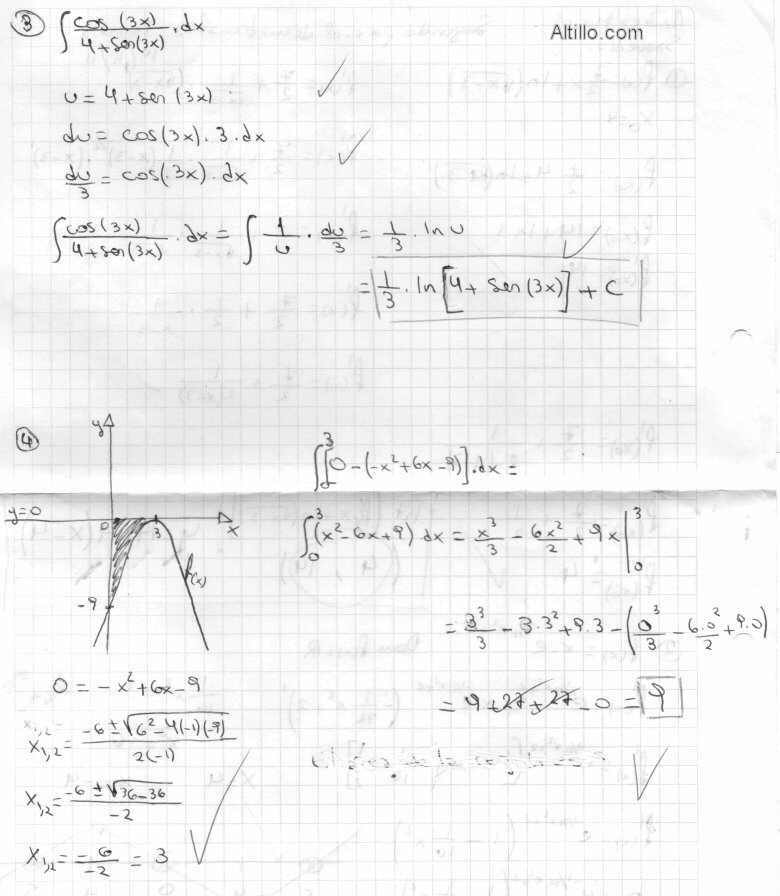 ③ ∫ cos(3x)/(4+sen(3x)) · dx
Altillo.com
u = 4+sen(3x)
du = cos(3x).3.dx
du/3 = cos(3x).dx
∫ cos(3x)/(4+sen(3x)) · dx = ∫ 1/u · du/3 = 1/3 · ln u
= 1/3 · ln[4+ sen(3x)] + C
④
y
y=0
0
3
x
-9
f(x)
∫₀³ [0-(-x²+6x-9)].dx =
∫₀³ (x²-6x+9) dx = x³/3 - 6x²/2 + 9x |₀³
= 3³/3 - 3.3²+9.3 - (0³/3 - 6.0²/2 + 9.0)
= 9+27+27-0 = 9
0 = -x²+6x-9
x₁,₂ = (-6±√(6²-4(-1)(-9)))/(2(-1))
x₁,₂ = (-6±√(36-36))/(-2)
x₁,₂ = -6/-2 = 3